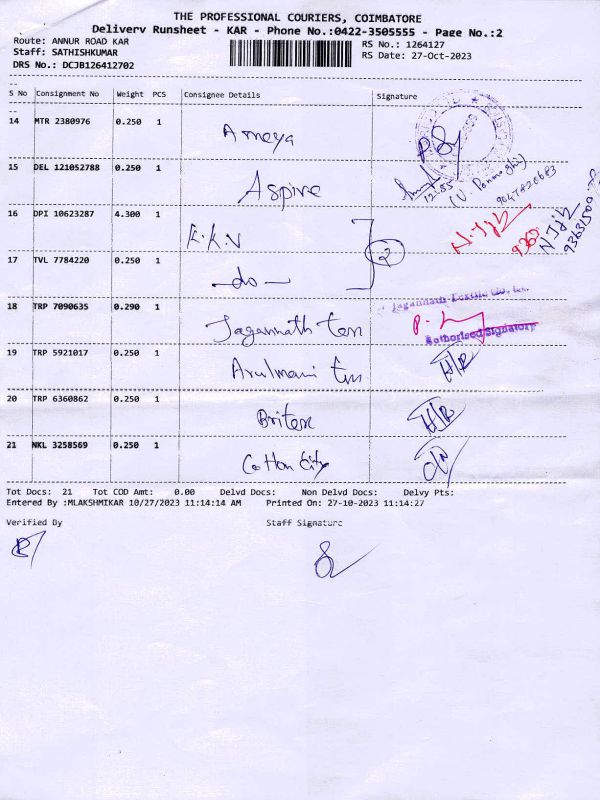 THE PROFESSIONAL COURIERS, COIMBATORE
Delivery Runsheet - KAR - Phone No.:0422-3505555 - Page No.:2
Route: ANNUR ROAD KAR
RS No.: 1264127
Staff: SATHISHKUMAR
RS Date: 27-Oct-2023
DRS No.: DCJB126412702
S No Consignment No Weight PCS Consignee Details Signature
14 MTR 2380976 0.250 1 Ameya
15 DEL 121052788 0.250 1 Aspire
12.55
16 DPI 10623287 4.300 1 K.K.N
17 TVL 7784220 0.250 1 -do- 2
18 TRP 7090635 0.290 1 Jagannath Tex
Jagannath Textile Co.
Authorised Signatory
19 TRP 5921017 0.250 1 Arulmani
20 TRP 6360862 0.250 1 Britex
21 NKL 3258569 0.250 1 Cotton City
Tot Docs: 21 Tot COD Amt: 0.00 Delvd Docs: Non Delvd Docs: Delvy Pts:
Entered By :MLAKSHMIKAR 10/27/2023 11:14:14 AM Printed On: 27-10-2023 11:14:27
Verified By Staff Signature